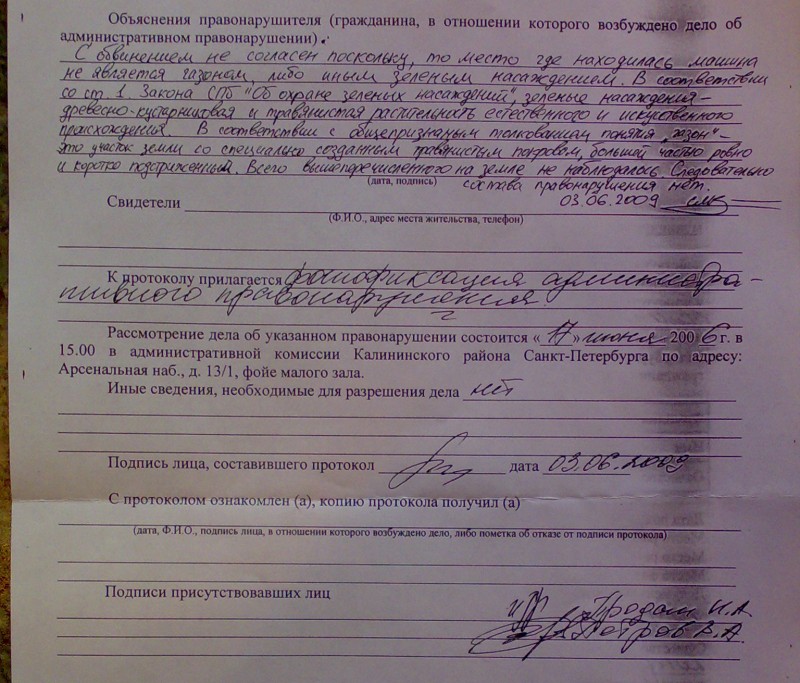 Объяснения правонарушителя (гражданина, в отношении которого возбуждено дело об
административном правонарушении).
С обвинением не согласен поскольку, то место где находилась машина
не является газоном, либо иным зеленым насаждением. В соответствии
со ст. 1. Закона СПб "Об охране зеленых насаждений", зеленые насаждения -
древесно-кустарниковая и травянистая растительность естественного и искуственного
происхождения. В соответствии с общепризнаным толкованием понятия "газон" -
это участок земли со специально созданным травянистым покровом, большей частью ровно
и коротко подстриженный. Всего вышеперечисленного на земле не наблюдалось. Следовательно
(дата, подпись) состава правонарушения нет.
Свидетели 03.06.2009
(Ф.И.О., адрес места жительства, телефон)
К протоколу прилагается фотофиксация администра-
тивного правонарушения.
Рассмотрение дела об указанном правонарушении состоится « 17 » июня 2006 г. в
15.00 в административной комиссии Калининского района Санкт-Петербурга по адресу:
Арсенальная наб., д. 13/1, фойе малого зала.
Иные сведения, необходимые для разрешения дела нет
Подпись лица, составившего протокол дата 03.06.2009
С протоколом ознакомлен (а), копию протокола получил (а)
(дата, Ф.И.О., подпись лица, в отношении которого возбуждено дело, либо пометка об отказе от подписи протокола)
Подписи присутствовавших лиц
И.А.
Петров В.А.